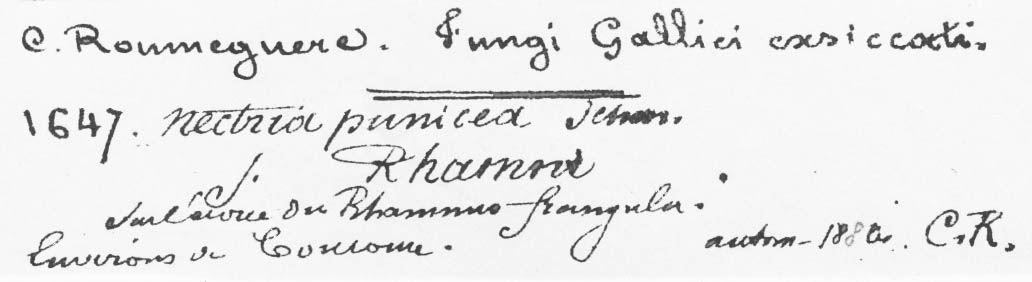 C. Roumeguere. Fungi Gallici exsiccati.
1647. Nectria punicea
f. Rhamni
Sur l'écorce du Rhamnus frangula.
Environs de autom- C.K.